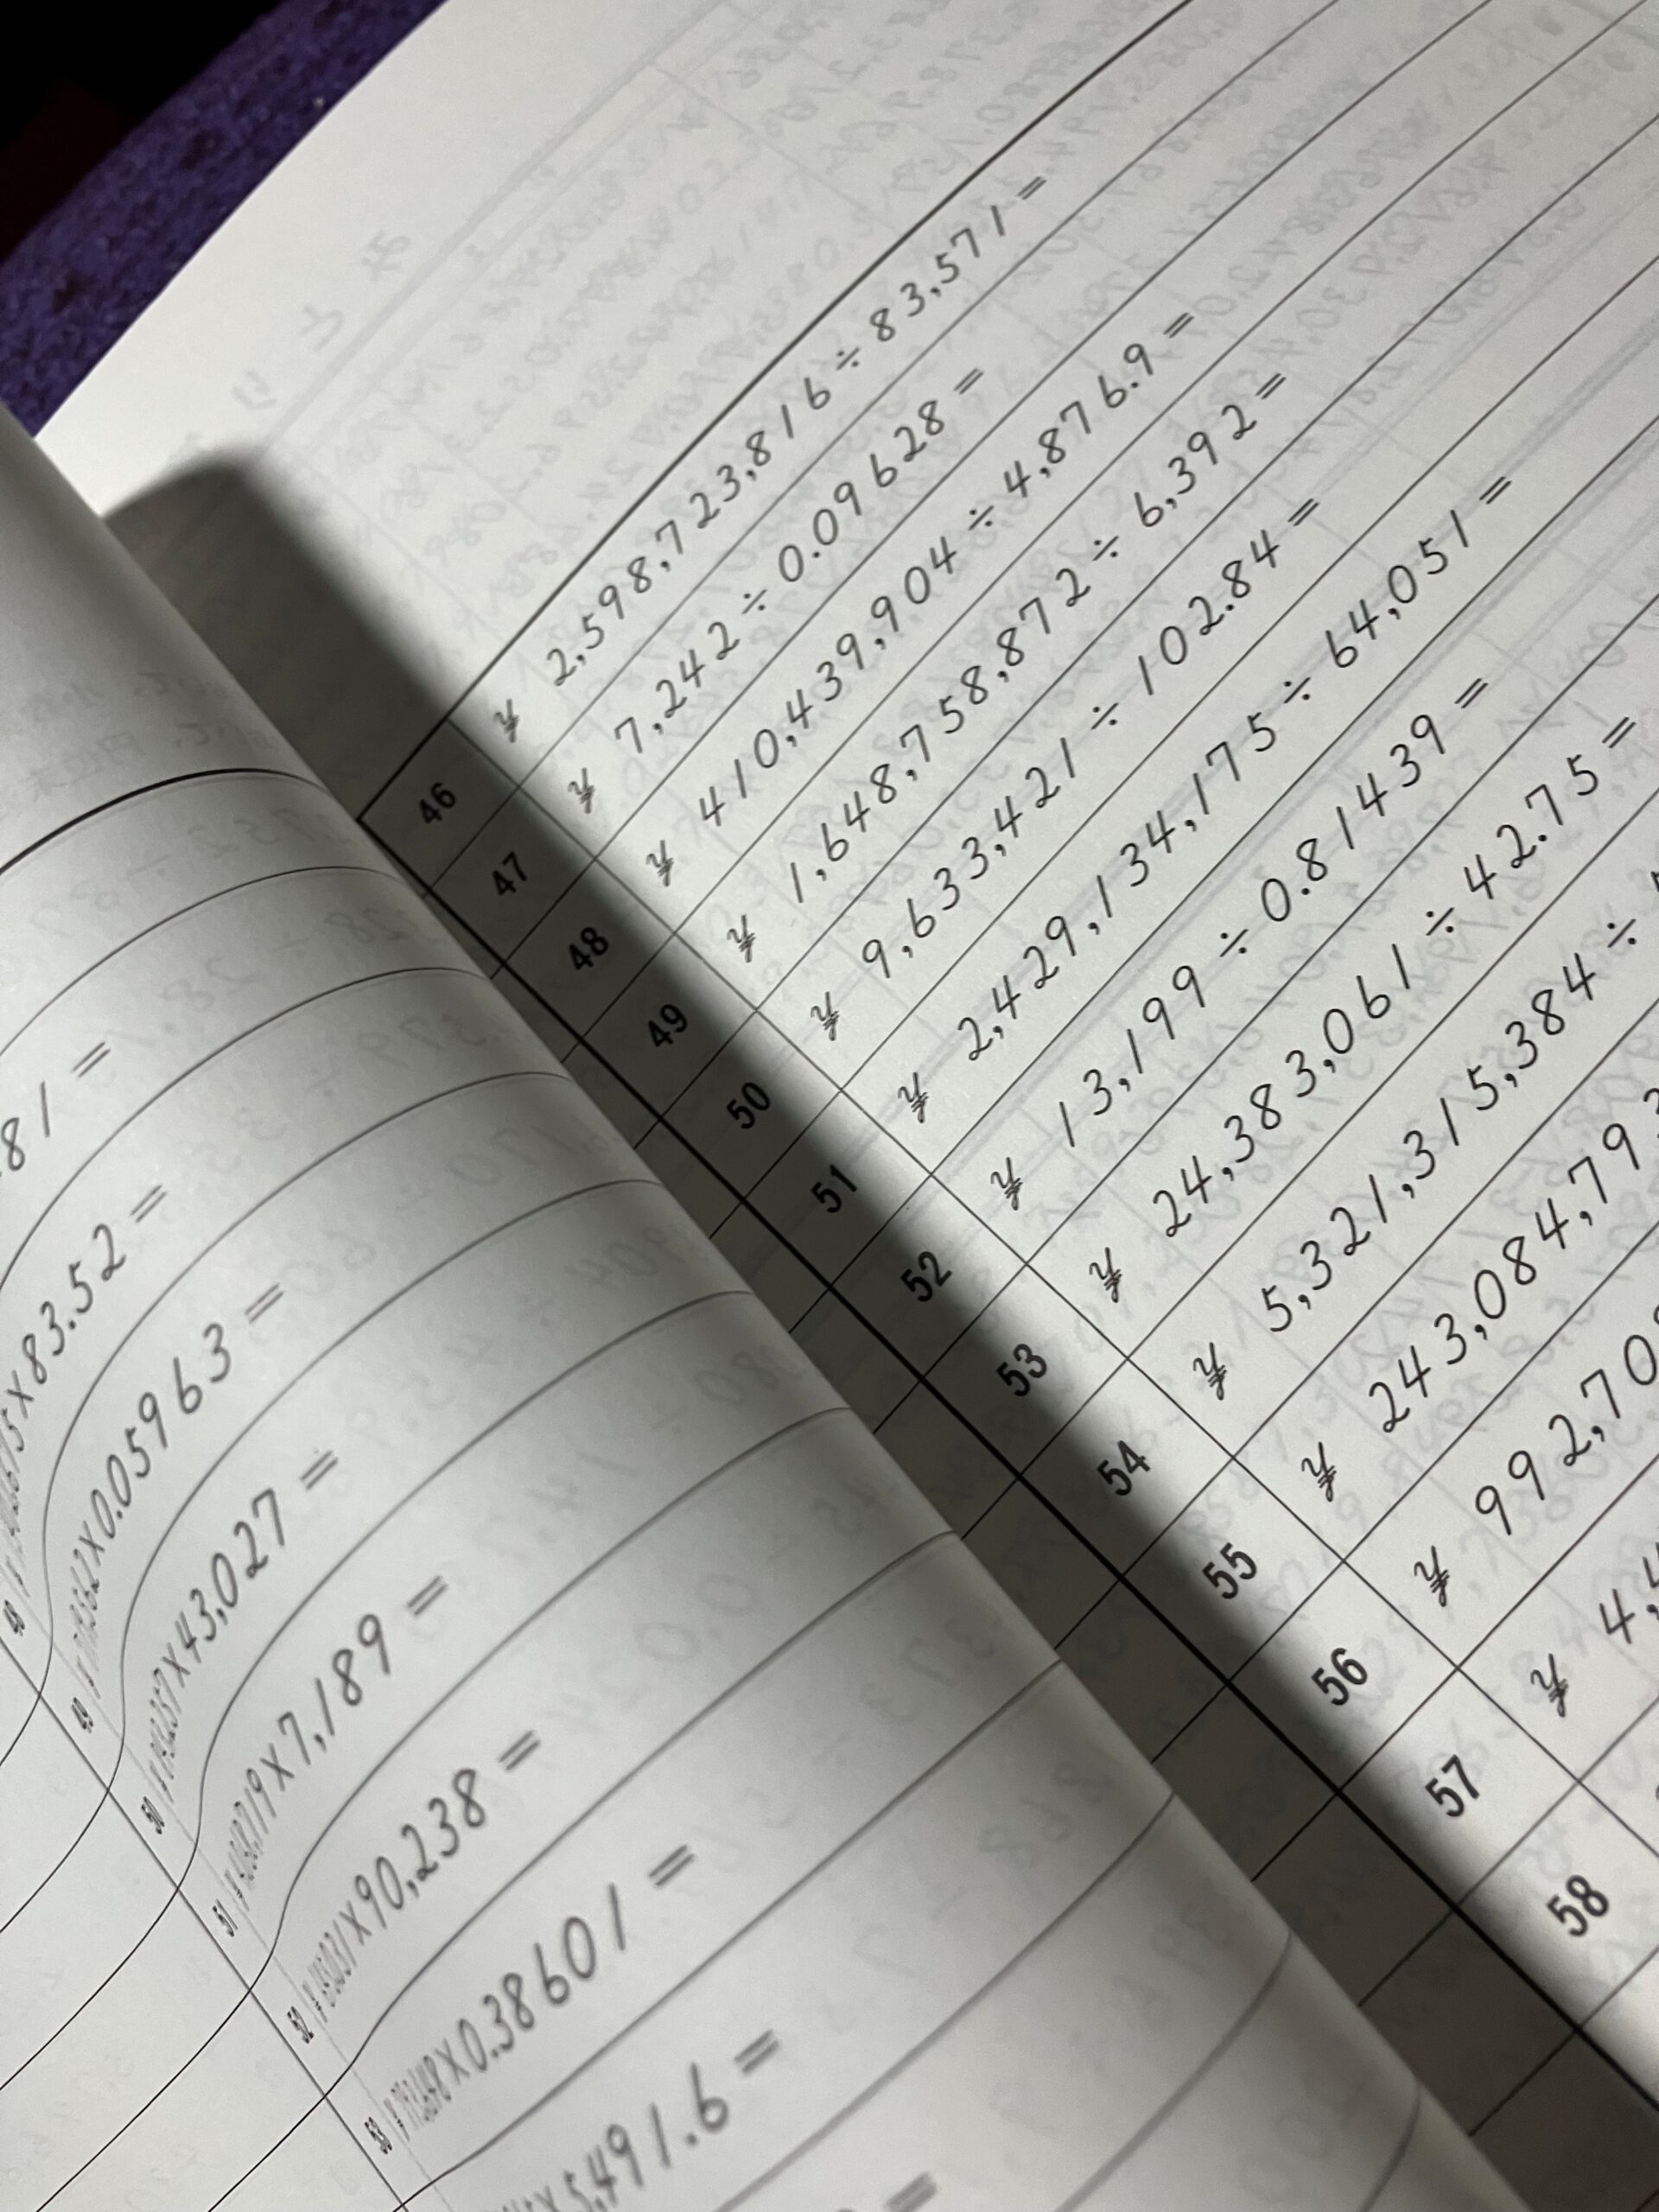 81 =
×83.52 =
×0.05963 =
×43,027 =
×7,189 =
×90,238 =
×0.38601 =
5,491.6 =
48
49
50
51
52
53
46 ¥ 2,598,723,816 ÷ 83,571 =
47 ¥ 7,242 ÷ 0.09628 =
48 ¥ 410,439,904 ÷ 4,876.9 =
49 ¥ 1,648,758,872 ÷ 6,392 =
50 ¥ 9,633,421 ÷ 102.84 =
51 ¥ 2,429,134,175 ÷ 64,051 =
52 ¥ 13,199 ÷ 0.81439 =
53 ¥ 24,383,061 ÷ 42.75 =
54 ¥ 5,321,315,384 ÷
55 ¥ 243,084,793
56 ¥ 992,70
57 ¥ 4,4
58